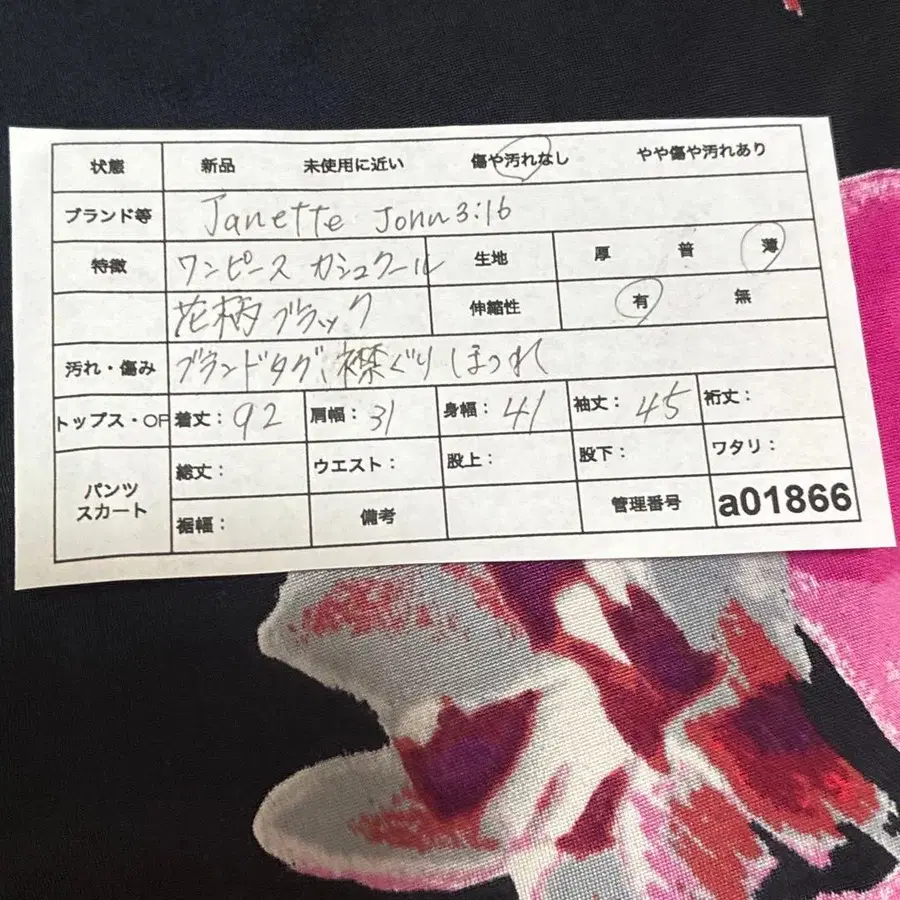 状態 新品 未使用に近い 傷や汚れなし やや傷や汚れあり
ブランド等 Janette John3:16
特徴 ワンピース カシュクール 生地 厚 普 薄
花柄ブラック 伸縮性 有 無
汚れ・傷み ブランドタグ、襟ぐりほつれ
トップス・OP 着丈:92 肩幅:31 身幅:41 袖丈:45 裄丈:
パンツ スカート 総丈: ウエスト: 股上: 股下: ワタリ:
裾幅: 備考 管理番号 a01866